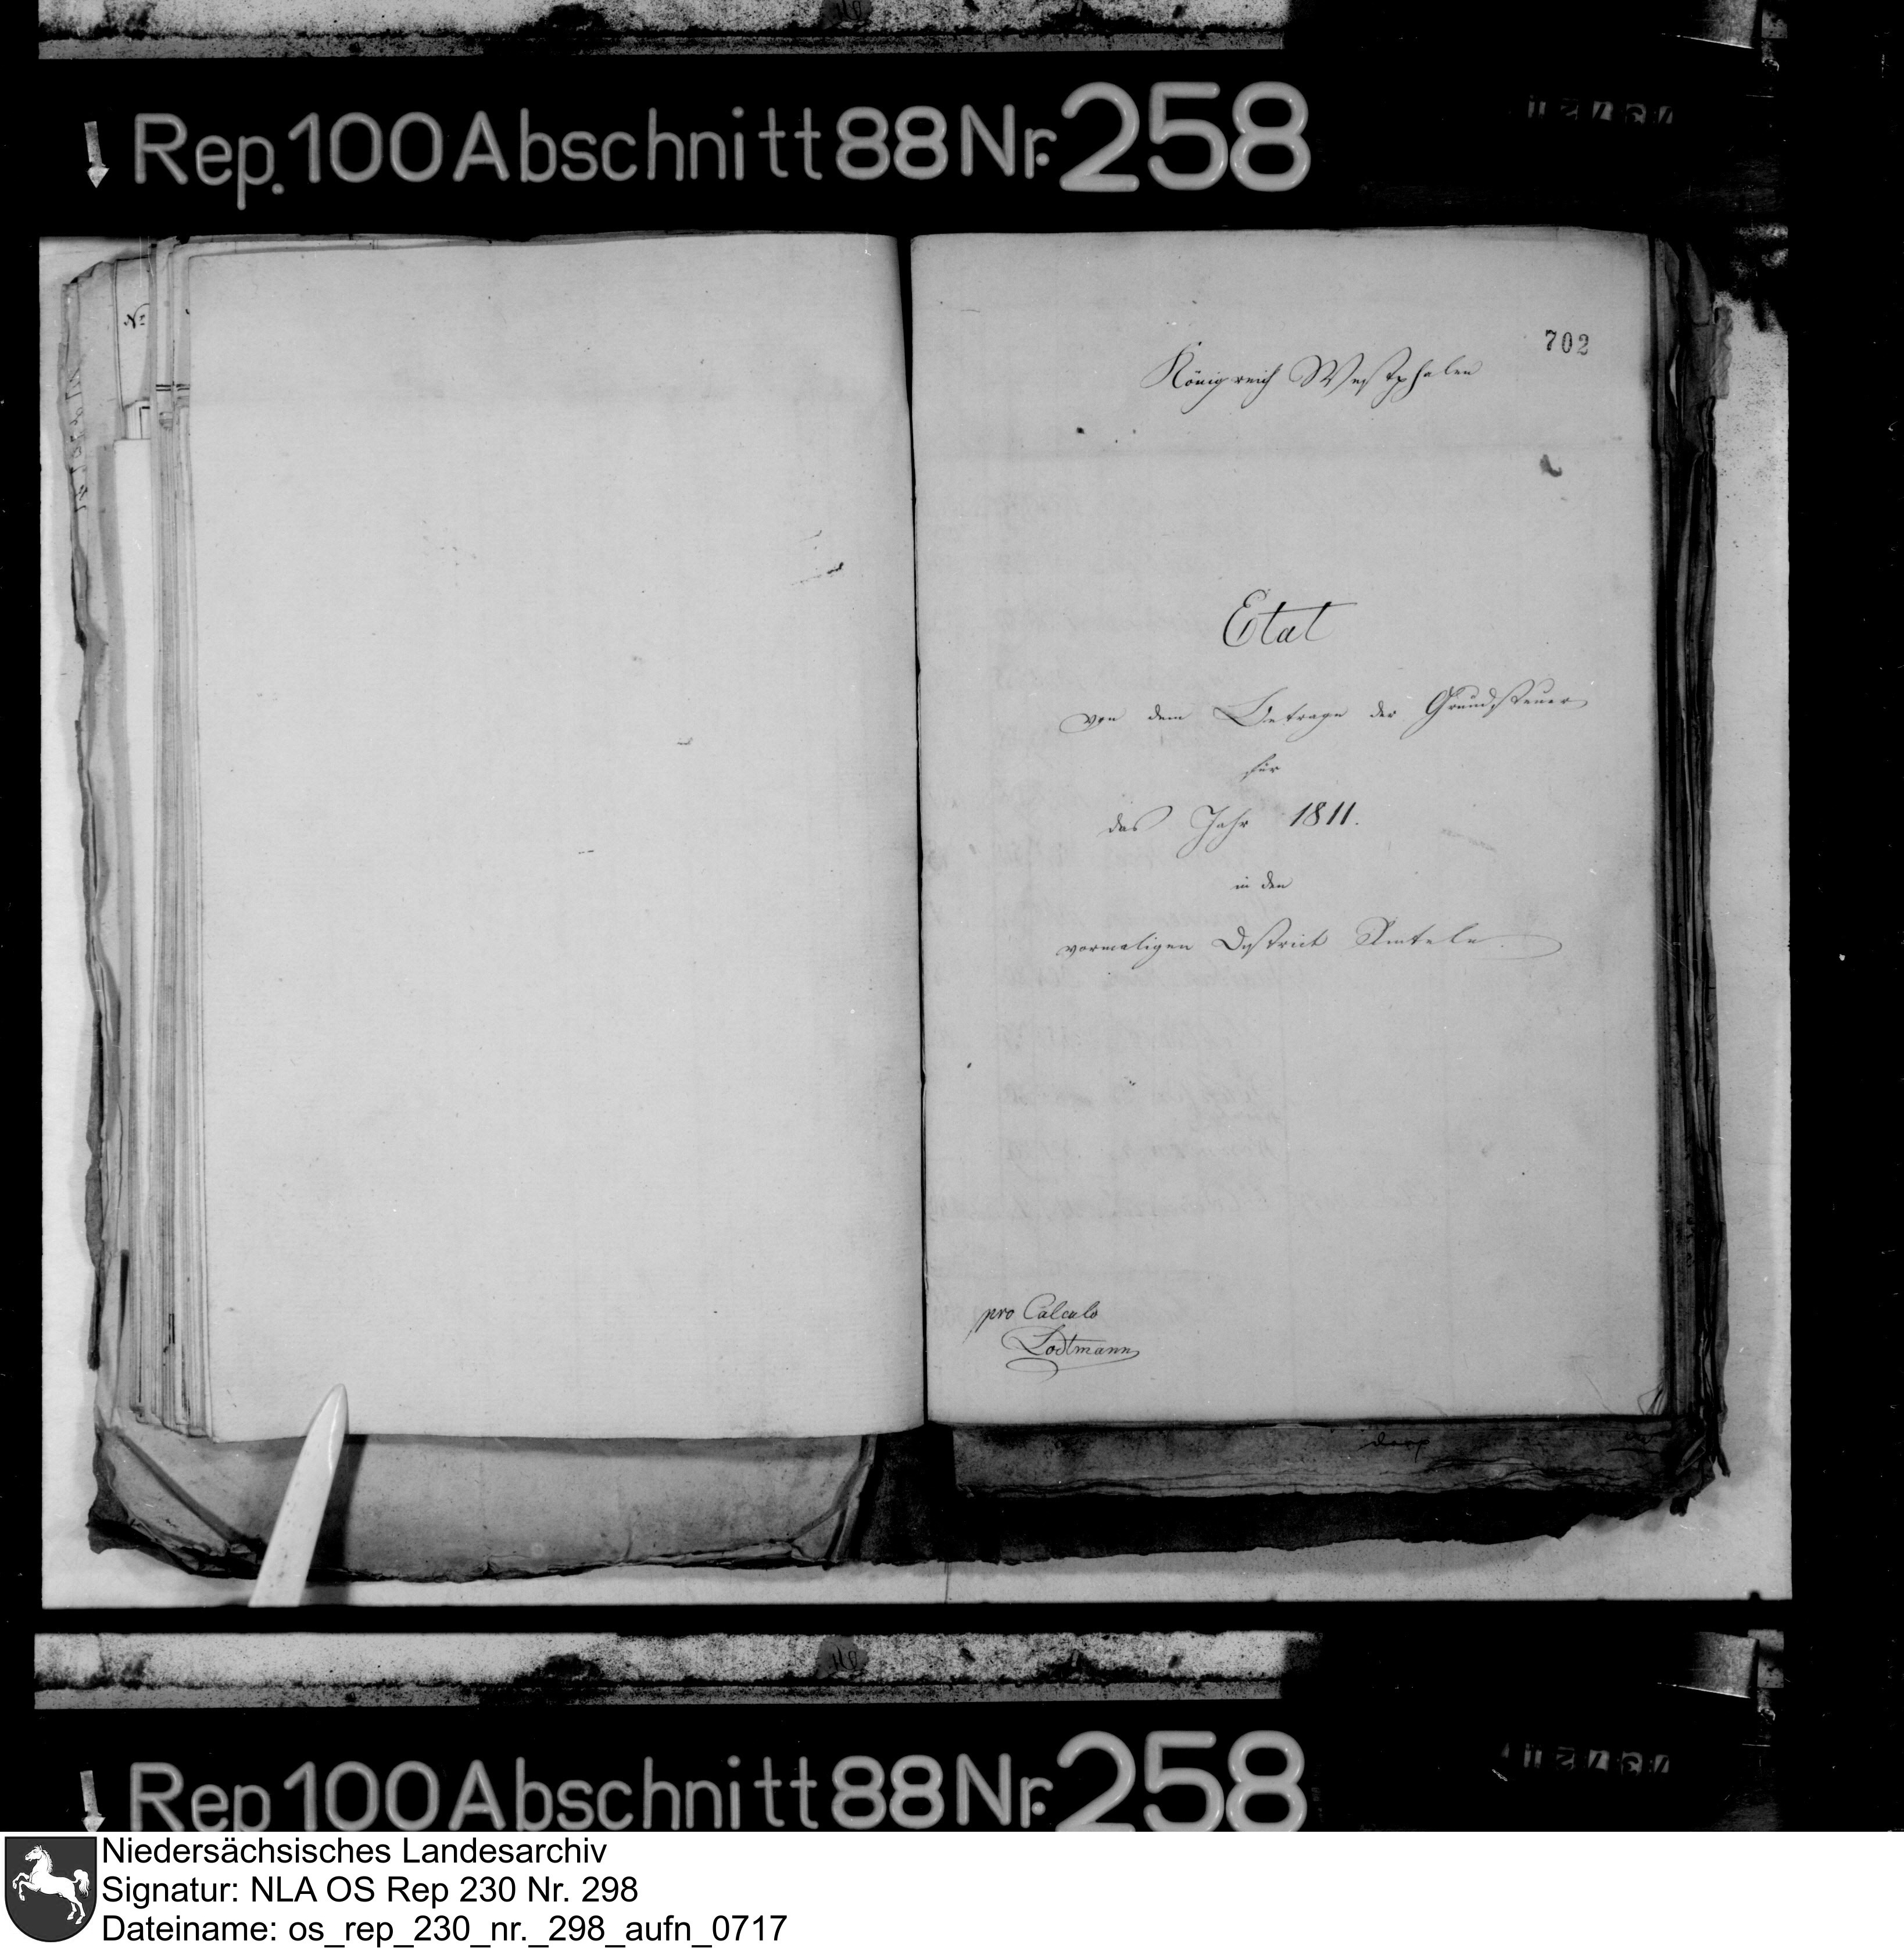 Rep. 100 Abschnitt 88 Nr. 258
702
Königreich Westphalen
Etat
von dem Betrage der Grundsteuer
für
das Jahr 1811.
in den
vormaligen District
pro Calculo
Lodtmann
Rep 100 Abschnitt 88 Nr. 258
Niedersächsisches Landesarchiv
Signatur: NLA OS Rep 230 Nr. 298
Dateiname: os_rep_230_nr._298_aufn_0717